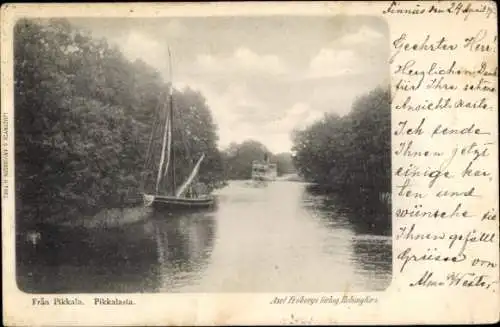 Finnäs den 24 April
Geehrter Herr!
Herzlichen Dank
für Ihre schöne
Ansichtskarte
Ich sende
Ihnen jetzt
einige kar-
ten und
wünsche sie
Ihnen gefällt
Grüsse von
Alma Wester
Från Pikkala. Pikkalasta.
Axel Frobergs förlag Helsingfors.